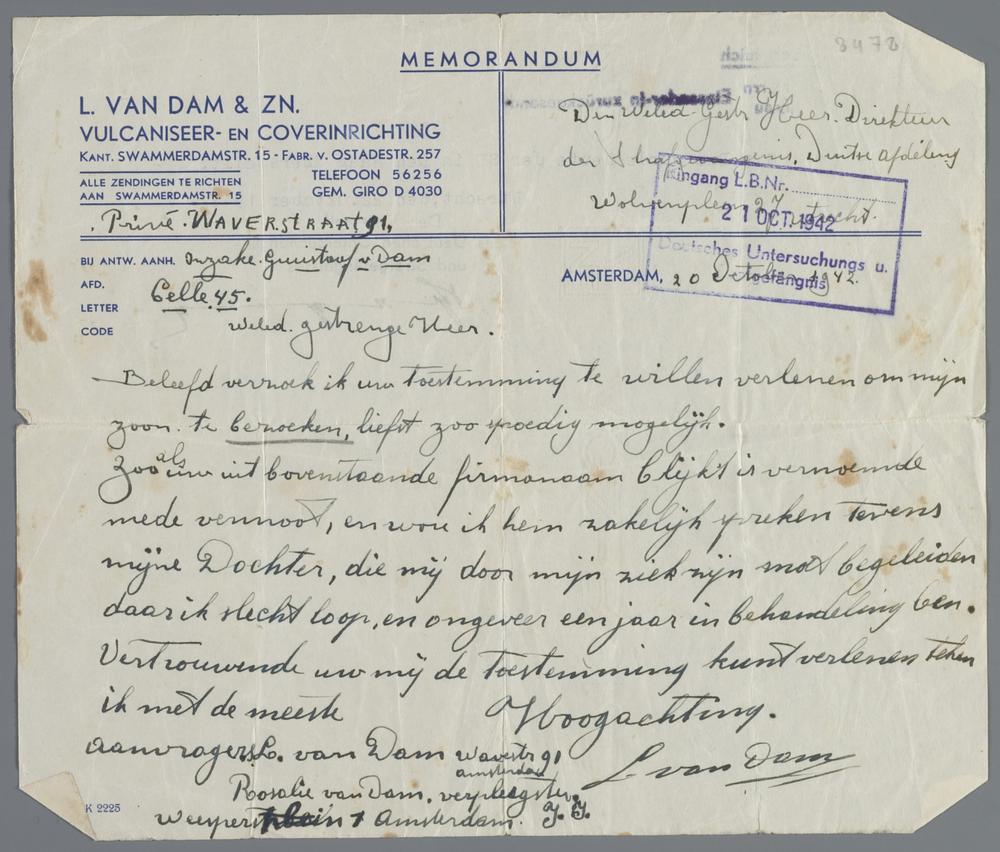 3478
MEMORANDUM
L. VAN DAM & ZN.
VULCANISEER- EN COVERINRICHTING
KANT. SWAMMERDAMSTR. 15 - FABR. V. OSTADESTR. 257
ALLE ZENDINGEN TE RICHTEN
AAN SWAMMERDAMSTR. 15
TELEFOON 56256
GEM. GIRO D 4030
Privé. WAVERSTRAAT 91,
Den Weled. Gestr Heer. Direkteur
der Strafgevangenis, Duitse afdeling
Wolvenplein 27 Utrecht.
Eingang L.B.Nr.
21 OCT. 1942
Deutsches Untersuchungs u.
gefängnis
BIJ ANTW. AANH. Inzake. Guustaaf v Dam
AFD.
LETTER Celle 45.
CODE
AMSTERDAM, 20 October 1942.
Weled. gestrenge Heer.
Beleefd verzoek ik uw toestemming te willen verlenen om mijn
zoon. te bezoeken, liefst zoo spoedig mogelijk.
Zooals uw uit bovenstaande firmanaam blijkt is vernoemde
mede vennoot, en wou ik hem zakelijk spreken tevens
mijne Dochter, die mij door mijn ziek zijn moet begeleiden
daar ik slecht loop, en ongeveer een jaar in behandeling ben.
Vertrouwende uw mij de toestemming kunt verlenen teken
ik met de meeste Hoogachting.
L. van Dam
aanvragers L. van Dam Waverstr 91
amsterdam
Rosalie van Dam, verpleegster,
Weesperplein 1 Amsterdam. J. I.
K 2225